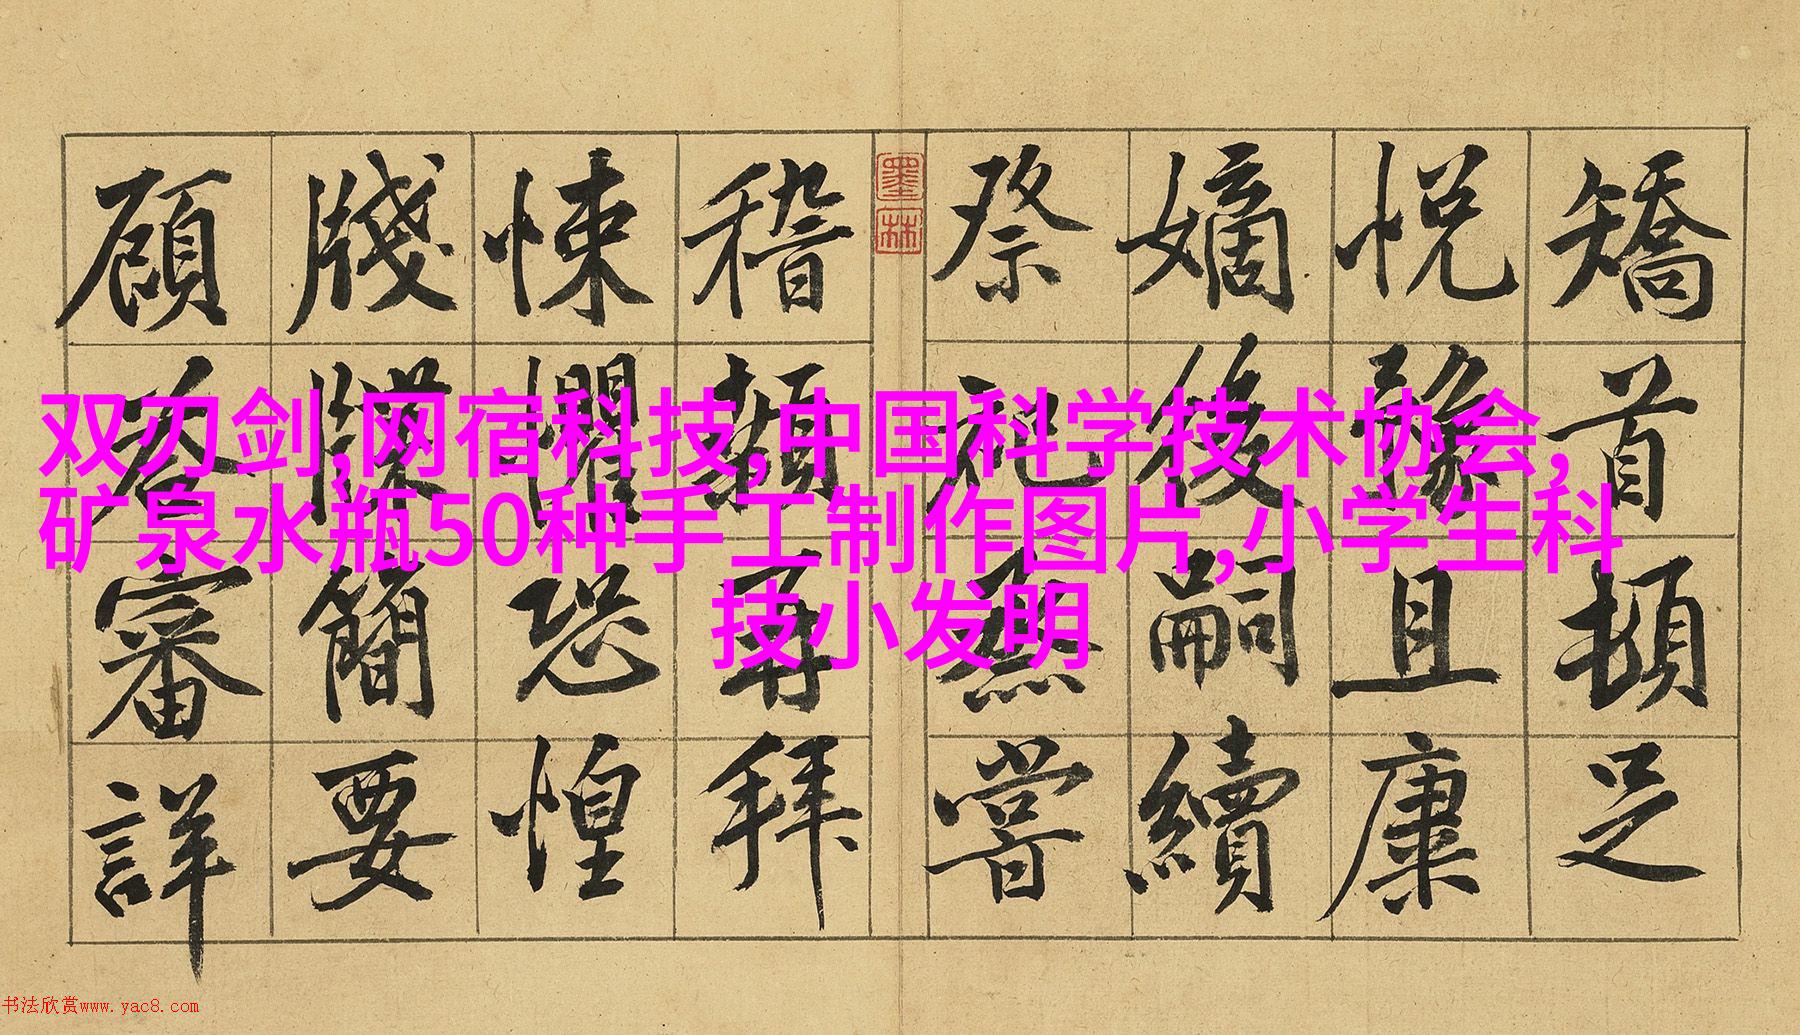 矯首頓足
悦豫且康
嫡後嗣續
祭祀烝嘗
墨林
稽顙再拜
悚懼恐惶
牋牒簡要
顧答審詳
双刃剑,网宿科技,中国科学技术协会,
矿泉水瓶50种手工制作图片,小学生科
技小发明
书法欣赏www.yac8.com